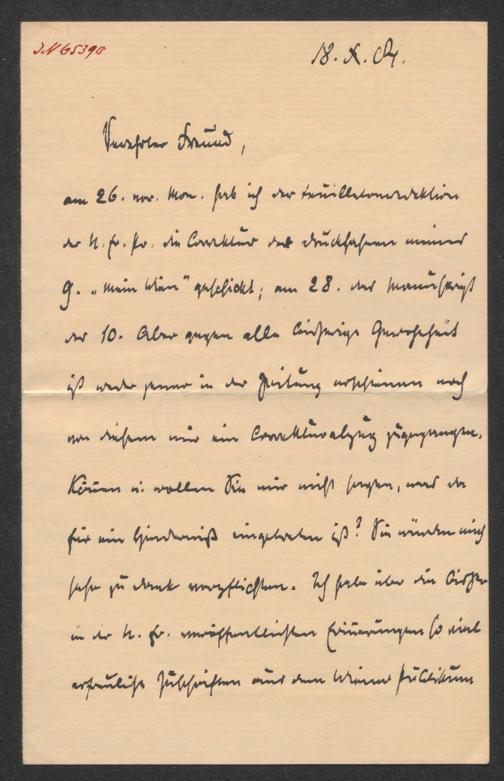 JN 65390
18. X. 04.
Verehrter Freund,
am 26. vor. Mon. hab ich der Feuilletonredaktion
der N. fr. Pr. die Correktur der Druckfahnen meines
9. „Mein Wien" geschickt; am 28. das Manuskript
des 10. Aber gegen alle bisherige Gewohnheit
ist weder jenes in der Zeitung erschienen noch
von diesem mir ein Correkturabzug zugegangen.
Können u. wollen Sie mir nicht sagen, was da
für ein Hinderniß eingetreten ist? Sie würden mich
sehr zu Dank verpflichten. Ich habe über die bisher
in der N. fr. veröffentlichten Erinnerungen so viel
erfreuliche Zuschriften aus dem Wiener Publikum